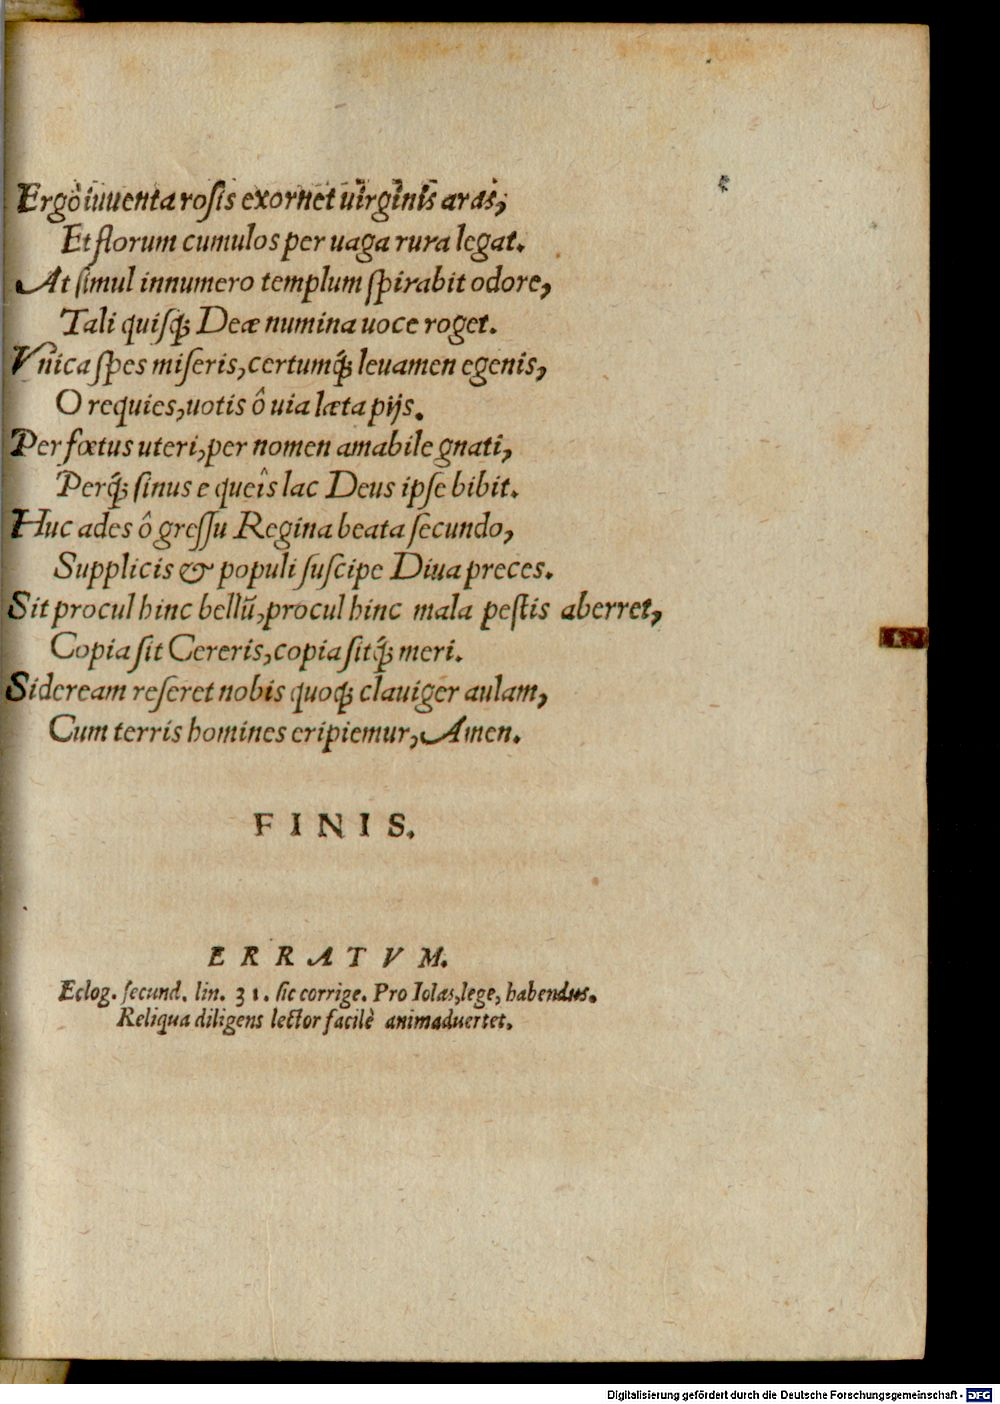 Ergò iuuenta rosis exornet uirginis aras,
Et florum cumulos per uaga rura legat.
At simul innumero templum spirabit odore,
Tali quisq; Deæ numina uoce roget.
Vnica spes miseris, certumq́; leuamen egenis,
O requies, uotis ô uia læta pijs.
Per fœtus uteri, per nomen amabile gnati,
Perq́; sinus e queîs lac Deus ipse bibit.
Huc ades ô gressu Regina beata secundo,
Supplicis & populi suscipe Diua preces.
Sit procul hinc bellũ, procul hinc mala pestis aberret,
Copia sit Cereris, copia sitq́; meri.
Sideream reseret nobis quoq; clauiger aulam,
Cum terris homines eripiemur, Amen.
FINIS.
ERRATVM.
Eclog. secund. lin. 31. sic corrige. Pro Iolas, lege, habendus.
Reliqua diligens lector facilè animaduertet.
Digitalisierung gefördert durch die Deutsche Forschungsgemeinschaft - DFG